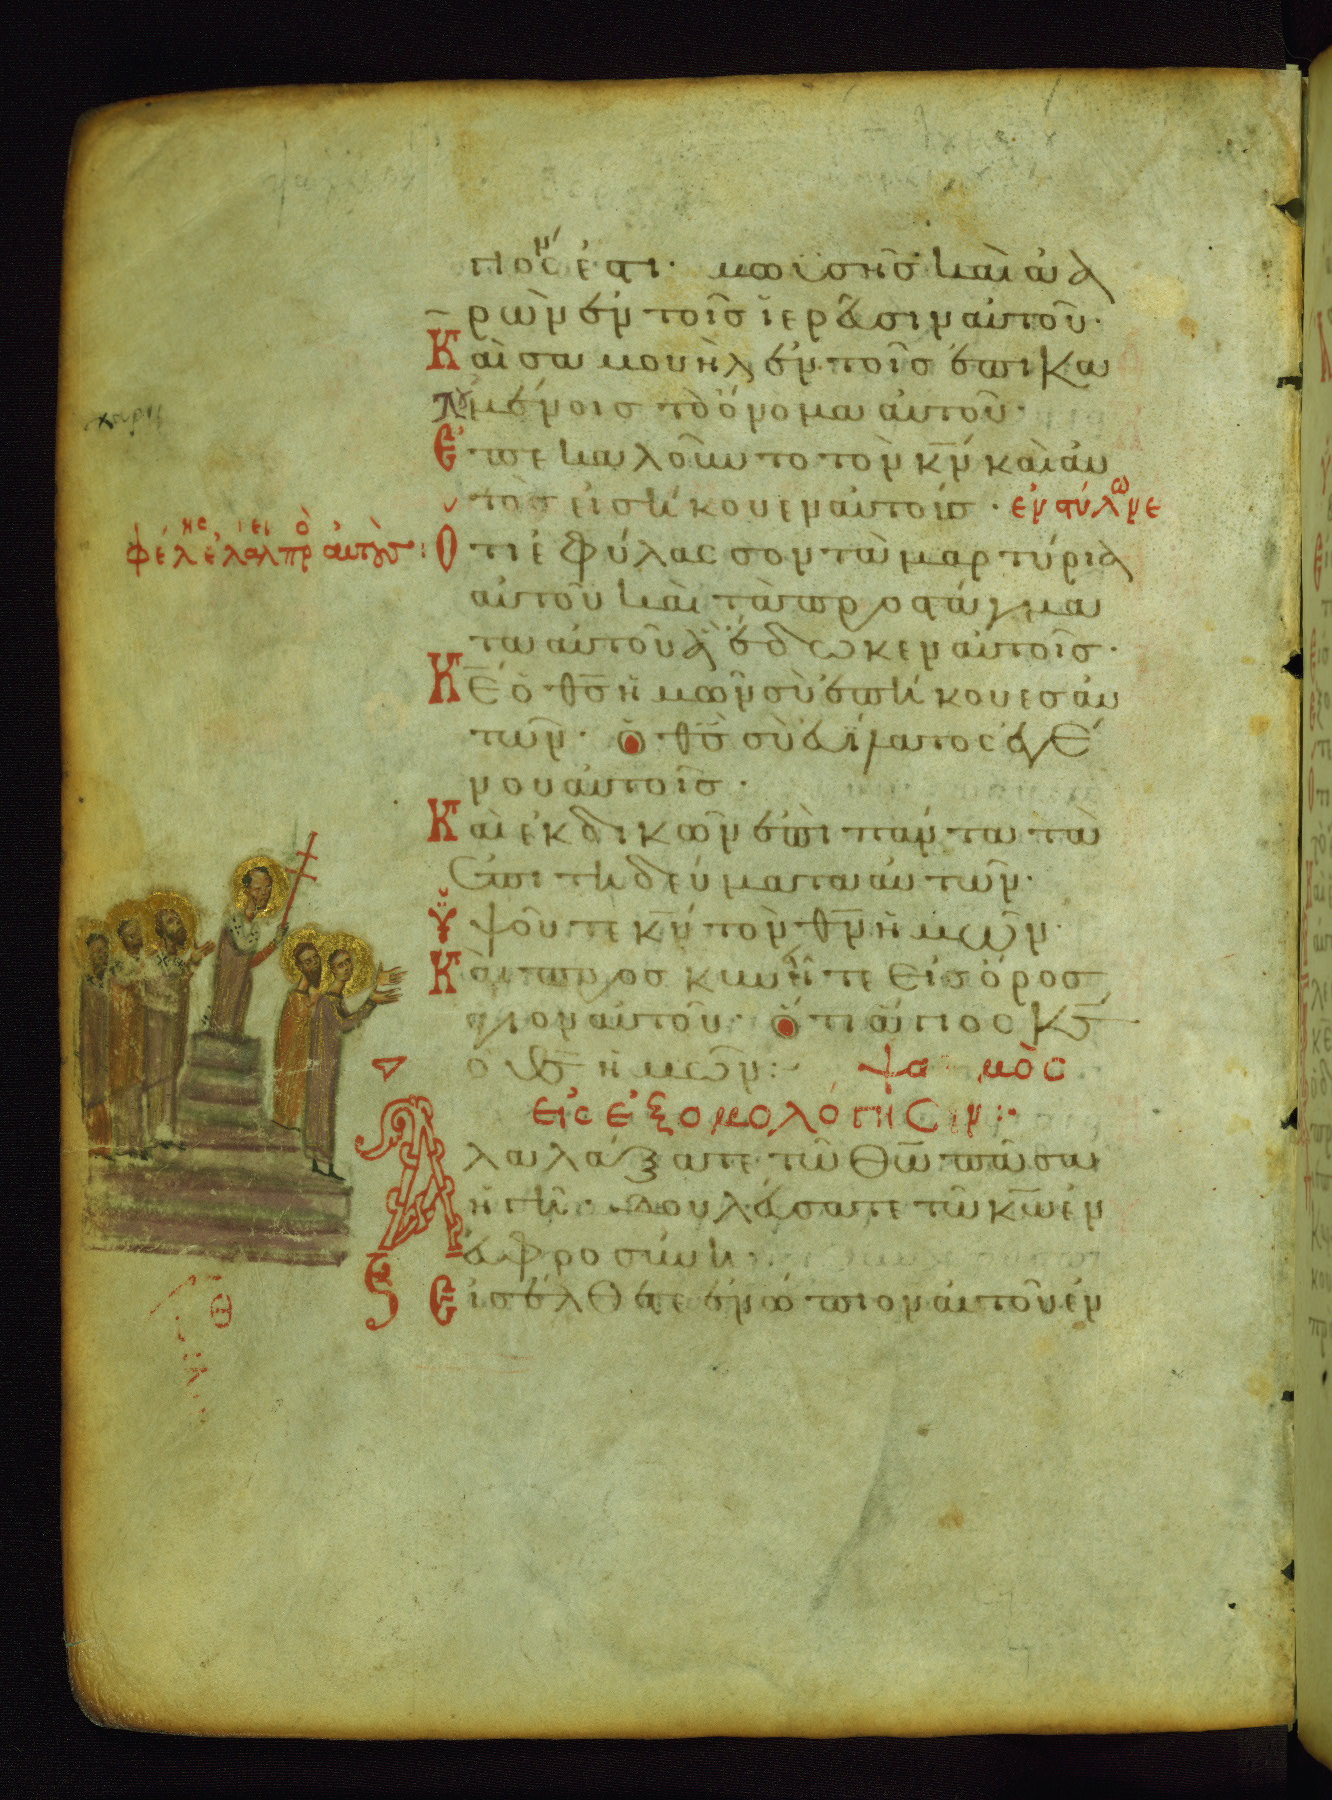 γιός ἐστι· μωϋσῆς καὶ ἀα
ρὼν ἐν τοῖς ἱερεῦσιν αὐτοῦ·
Καὶ σαμουὴλ ἐν τοῖς ἐπικα
λουμένοις τὸ ὄνομα αὐτοῦ·
Ἐπεκαλοῦντο τὸν κ̅ν̅ καὶ αὐ
τὸς εἰσήκουεν αὐτοῖς· ἐν στύλω νε
φέλης ἐλάλει πρὸ αὐτοὺς:
Ὅτι ἐφύλασσον τὰ μαρτύρια
αὐτοῦ καὶ τὰ προστάγμα
τα αὐτοῦ ἃ ἔδωκεν αὐτοῖς·
Κ̅Ε̅ ὁ θ̅ς̅ ἡμῶν σὺ ἐπήκουες αὐ
τῶν· ὁ θ̅ς̅ σὺ εὐΐλατος ἐγέ
νου αὐτοῖς·
Καὶ ἐκδικῶν ἐπὶ πάντα τὰ
ἐπιτηδεύματα αὐτῶν·
Ὑψοῦτε κ̅ν̅ τὸν θ̅ν̅ ἡμῶν·
Καὶ προσκυνεῖτε εἰς ὄρος
ἅγιον αὐτοῦ· ὅτι ἅγιος κ̅ς̅
ὁ θ̅ς̅ ἡμῶν:~ ψα μὸς
εἰς ἐξομολόγησιν:·
Ἀλαλάξατε τῶ θ̅ω̅ πᾶσα
ἡ γῆ· δουλεύσατε τῶ κ̅ω̅ ἐν
εὐφροσύνη·
Εἰσέλθατε ἐνώπιον αὐτοῦ ἐν
Θ